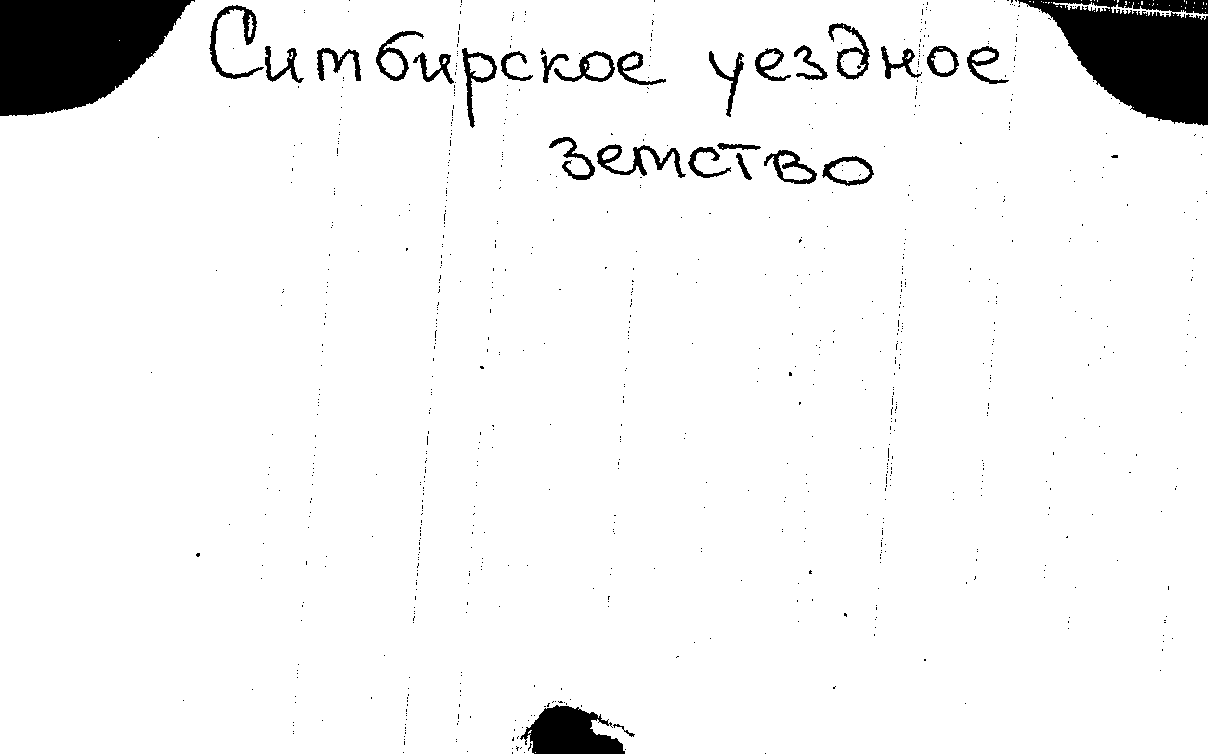 Симбирское уездное
земство